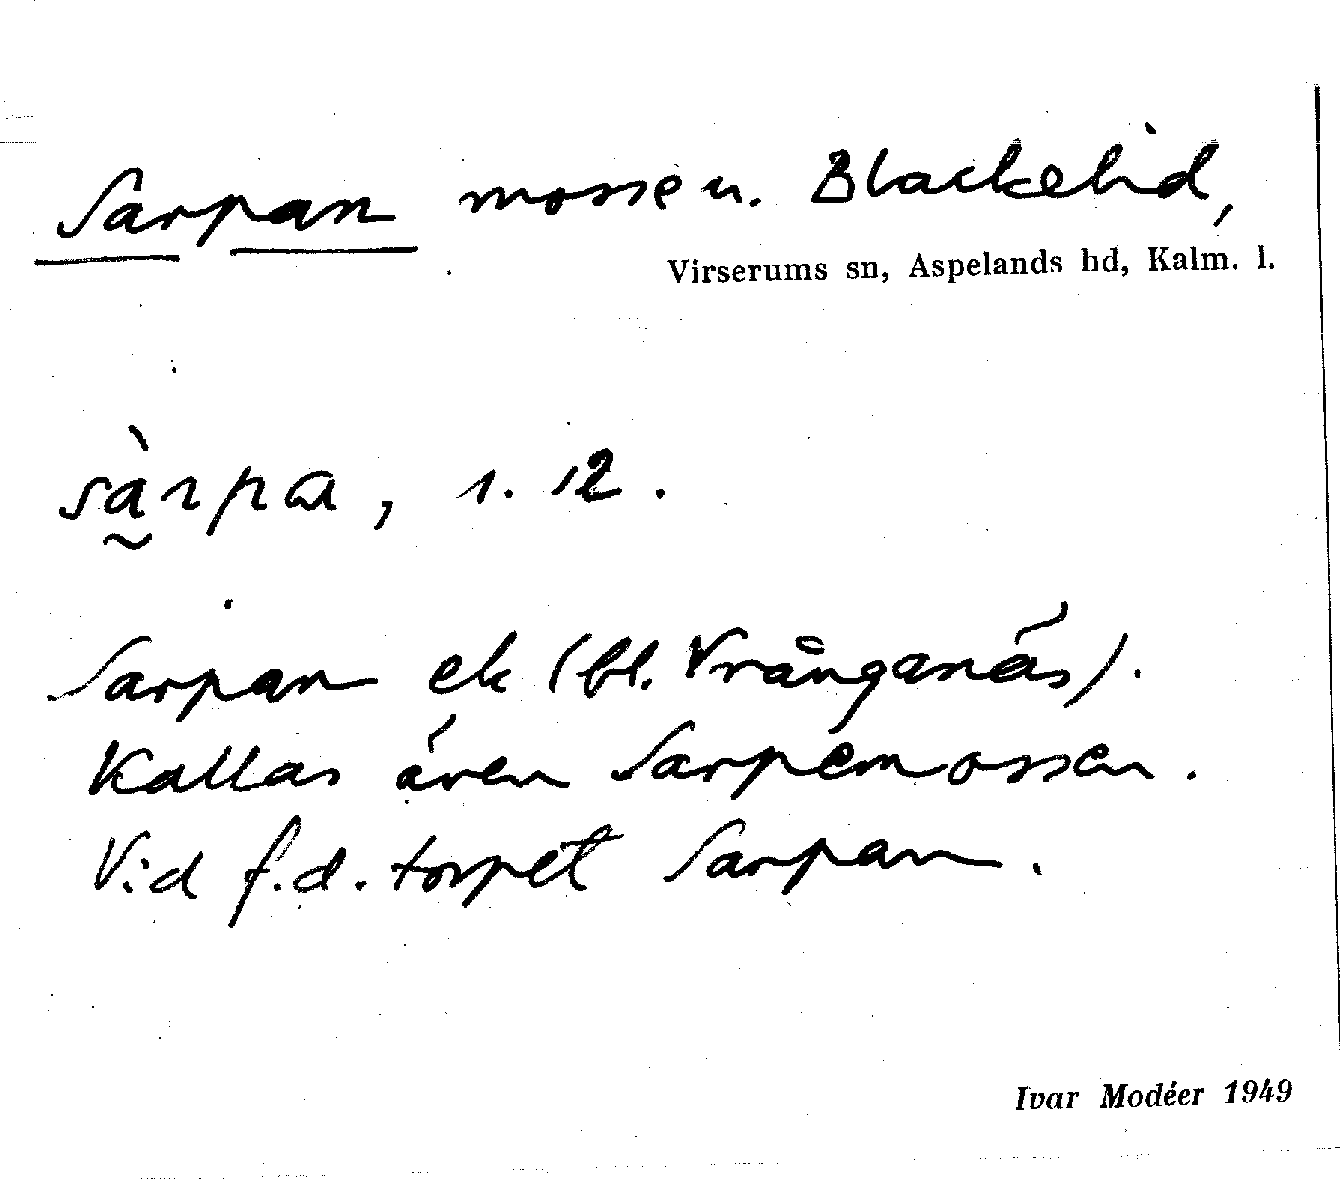 Sarpan mosse u. Blackelid,
Virserums sn, Aspelands hd, Kalm. l.
sàrpa, 1. 12.
Sarpan ek (bl. Vrånganäs).
Kallas även Sarpemossen.
Vid f.d. torpet Sarpan.
Ivar Modéer 1949